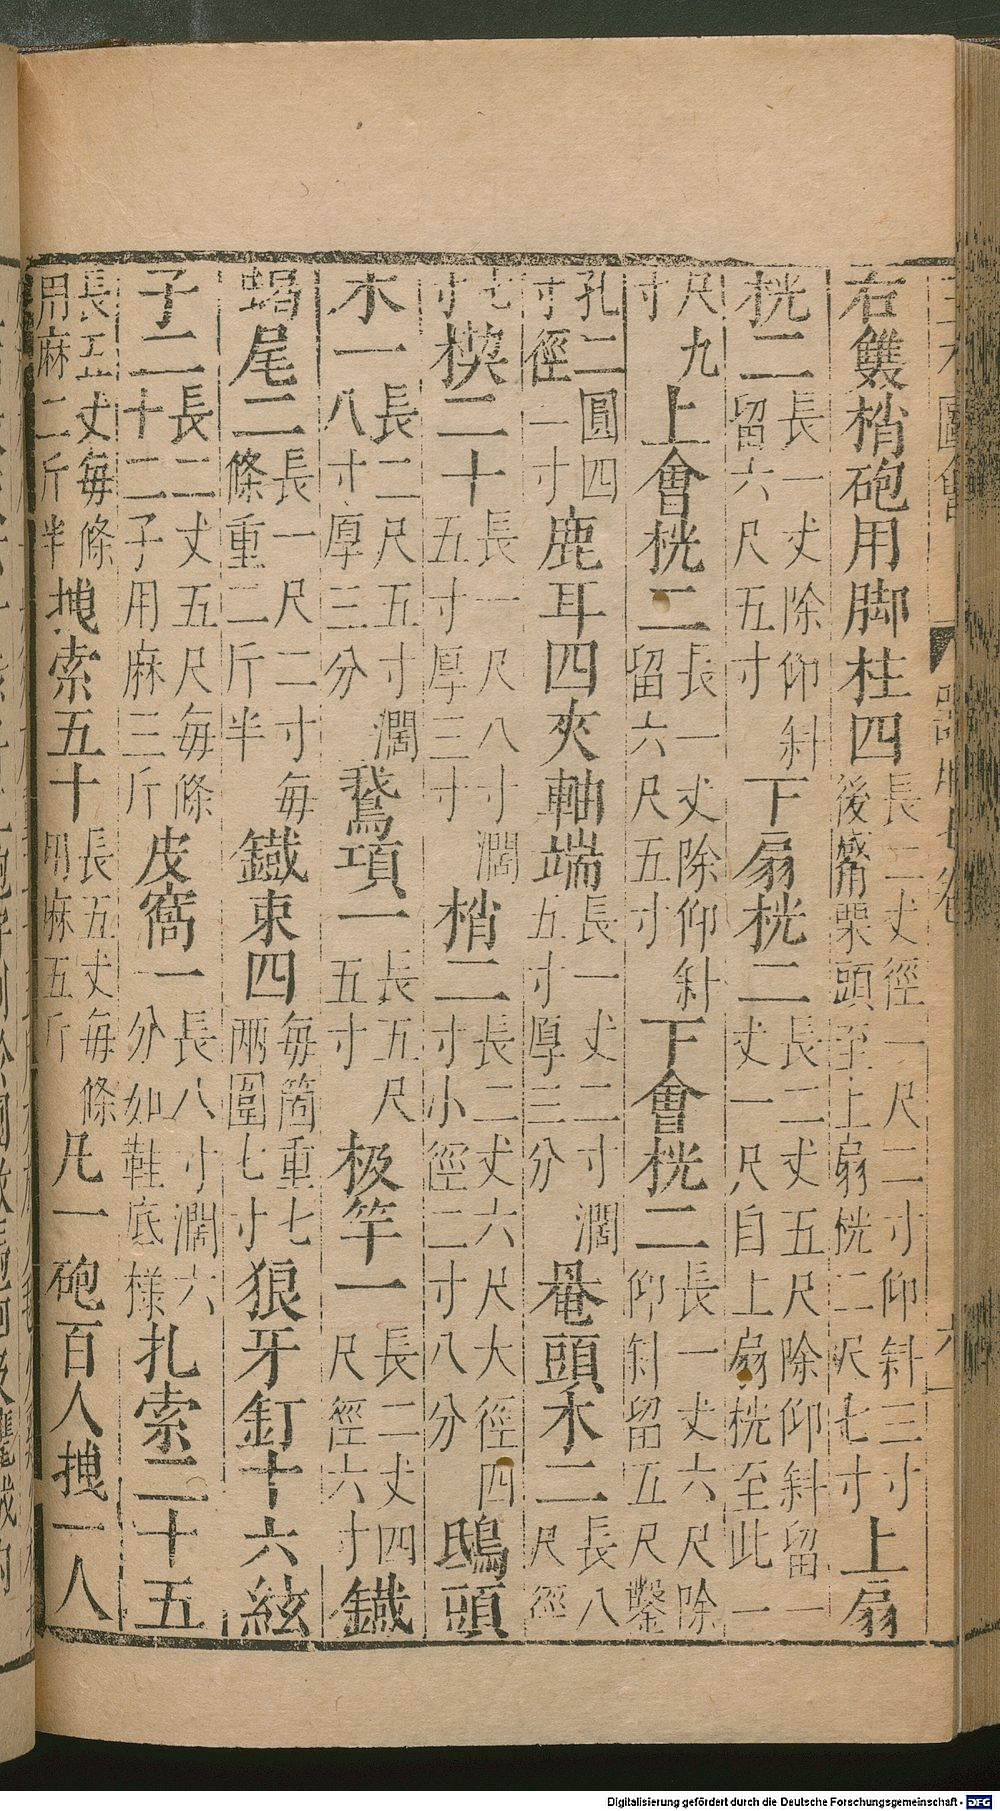 右雙梢砲用脚柱四長二丈徑一尺二寸仰斜三寸後觜用栗頭子上扇桄二尺七寸上扇
桄二長一丈除仰斜留六尺五寸下扇桄二長二丈五尺除仰斜留一丈一尺自上扇桄至此一
尺九寸上會桄二長一丈除仰斜留六尺五寸下會桄二長一丈六尺除仰斜留五尺鑿
孔二圓四寸徑一寸鹿耳四夾軸端長一丈二寸濶五寸厚三分罨頭木二長八尺徑
七寸楔二十長一尺八寸濶五寸厚三寸梢二長二丈六尺大徑四寸小徑二寸八分鴟頭
木一長二尺五寸濶八寸厚三分鵞項一長五尺五寸极竿一長二丈四尺徑六寸鐵
蝎尾二長一尺二寸每條重二斤半鐵束四每箇重七兩圍七寸狼牙釘十六絃
子二長二丈五尺每條十二子用麻三斤皮窩一長八寸濶六分如鞋底様扎索二十五
長五丈每條用麻二斤半拽索五十長五丈每條用麻五斤凡一砲百人拽一人
Digitalisierung gefördert durch die Deutsche Forschungsgemeinschaft - DFG